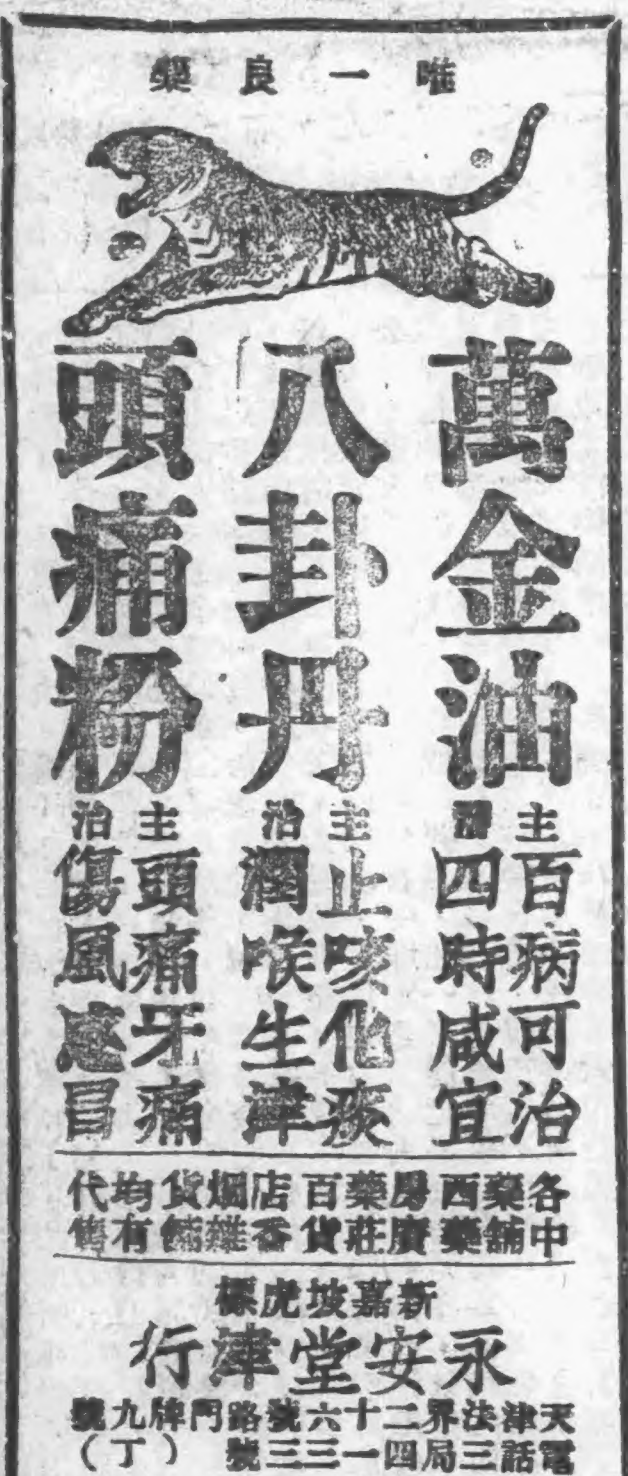 唯一良藥
萬金油
主治
百病可治
四時咸宜
八卦丹
主治
止咳化痰
潤喉生津
頭痛粉
主治
頭痛牙痛
傷風感冒
各中
藥舖
西藥
房廣
藥莊
百貨
店香
烟雜
貨舖
均有
代售
新嘉坡虎標
永安堂津行
天津法界二十六號路門牌九號
電話三局四一三三號(丁)